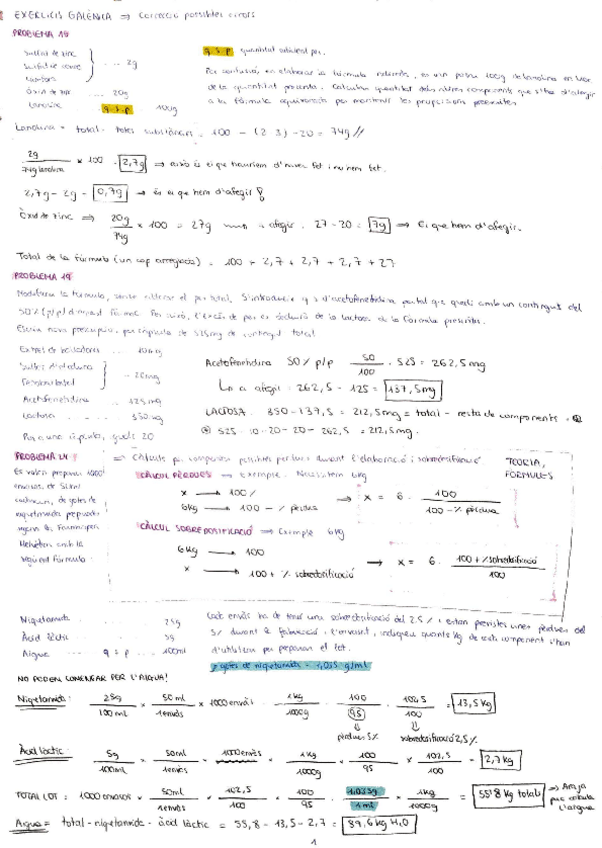 EXERCICIS GALÈNICA ⇒ Correcció possibles errors
PROBLEMA 18
Sulfat de zinc
Sulfat de coure
Càmfora
.... 2g
Òxid de zinc .... 20g
Lanolina q.s.p 100g
q.s.p quantitat suficient per.
Per confusió, en elaborar la fórmula es van posar 100g de lanolina en lloc
de la quantitat prescrita. Calculeu quantitat dels altres components que s'ha d'afegir
a la fórmula per mantenir les proporcions prescrites.
Lanolina = total - totes substàncies = 100 - (2·3) - 20 = 74g //
2g / 74g lanolina × 100 = 2,7g ⇒ això és el que hauríem d'haver fet i no hem fet.
2,7g - 2g = 0,7g ⇒ és el que hem d'afegir!
Òxid de zinc ⇒ 20g / 74g × 100 = 27g a afegir: 27 - 20 = 7g ⇒ El que hem d'afegir.
Total de la fórmula (un cop arreglada) = 100 + 2,7 + 2,7 + 2,7 + 27
PROBLEMA 19
Modifiqueu la fórmula, sense alterar el pes total. S'introdueix d'acetofenetidina per tal que quedi amb un contingut del
50% (p/p) d'aquest fàrmac. Per això, l'excés de pes es dedueix de la lactosa de la fórmula prescrita.
Escriu nova prescripció, per càpsula de 525mg de contingut total
Extret de belladona ... 10mg
... 20mg
Fenobarbital
Acetofenetidina ... 125mg
Lactosa ... 350mg
Per a una càpsula, 20
Acetofenetidina 50% p/p 50/100 · 525 = 262,5mg
↳ a afegir: 262,5 - 125 = 137,5mg
LACTOSA: 350 - 137,5 = 212,5mg = total - resta de components
525 - 10 - 20 - 20 - 262,5 = 212,5mg.
PROBLEMA 24
⇒ Càlculs per compensar possibles pèrdues durant l'elaboració i sobredosificació.
TEORIA, FÓRMULES
Es volen preparar 1000
envasos de 50ml
de gotes de
niquetamida
Helvètica amb la
següent fórmula:
CÀLCUL PÈRDUES → Exemple: Necessitem 6kg
x → 100%
6kg → 100 - % pèrdues
⇒ x = 6 · 100 / 100 - % pèrdua
CÀLCUL SOBREDOSIFICACIÓ ⇒ Exemple 6kg
6kg → 100
x → 100 + % sobredosificació
→ x = 6 · 100 + % sobredosificació / 100
Niquetamida ... 25g
Àcid làctic ... 5g
Aigua ... q.s.p ... 100ml
Cada envàs ha de tenir una sobredosificació del 2.5% i estan previstes unes pèrdues del
5% durant la fabricació i l'envasat, indiqueu quants kg de cada component s'han
d'utilitzar per preparar el lot.
ρ gotes de niquetamida = 1,033 g/ml
NO PODEM COMENÇAR PER L'AIGUA!
Niquetamida: 25g/100ml × 50ml/1envàs × 1000 envàs · 1kg/1000g · 100/95 · 102,5/100 = 13,5kg
pèrdues 5%
sobredosificació 2,5%
Àcid làctic: 5g/100ml × 50ml/1envàs × 1000 envàs × 1kg/1000g × 100/95 × 102,5/100 = 2,7kg
TOTAL LOT: 1000 envasos × 50ml/1envàs × 102,5/100 × 100/95 × 1,033g/1ml × 1kg/1000g = 55,8 kg totals ⇒ Ara ja puc calcular l'aigua
Aigua = total - niquetamida - àcid làctic = 55,8 - 13,5 - 2,7 = 39,6 kg H₂O
1